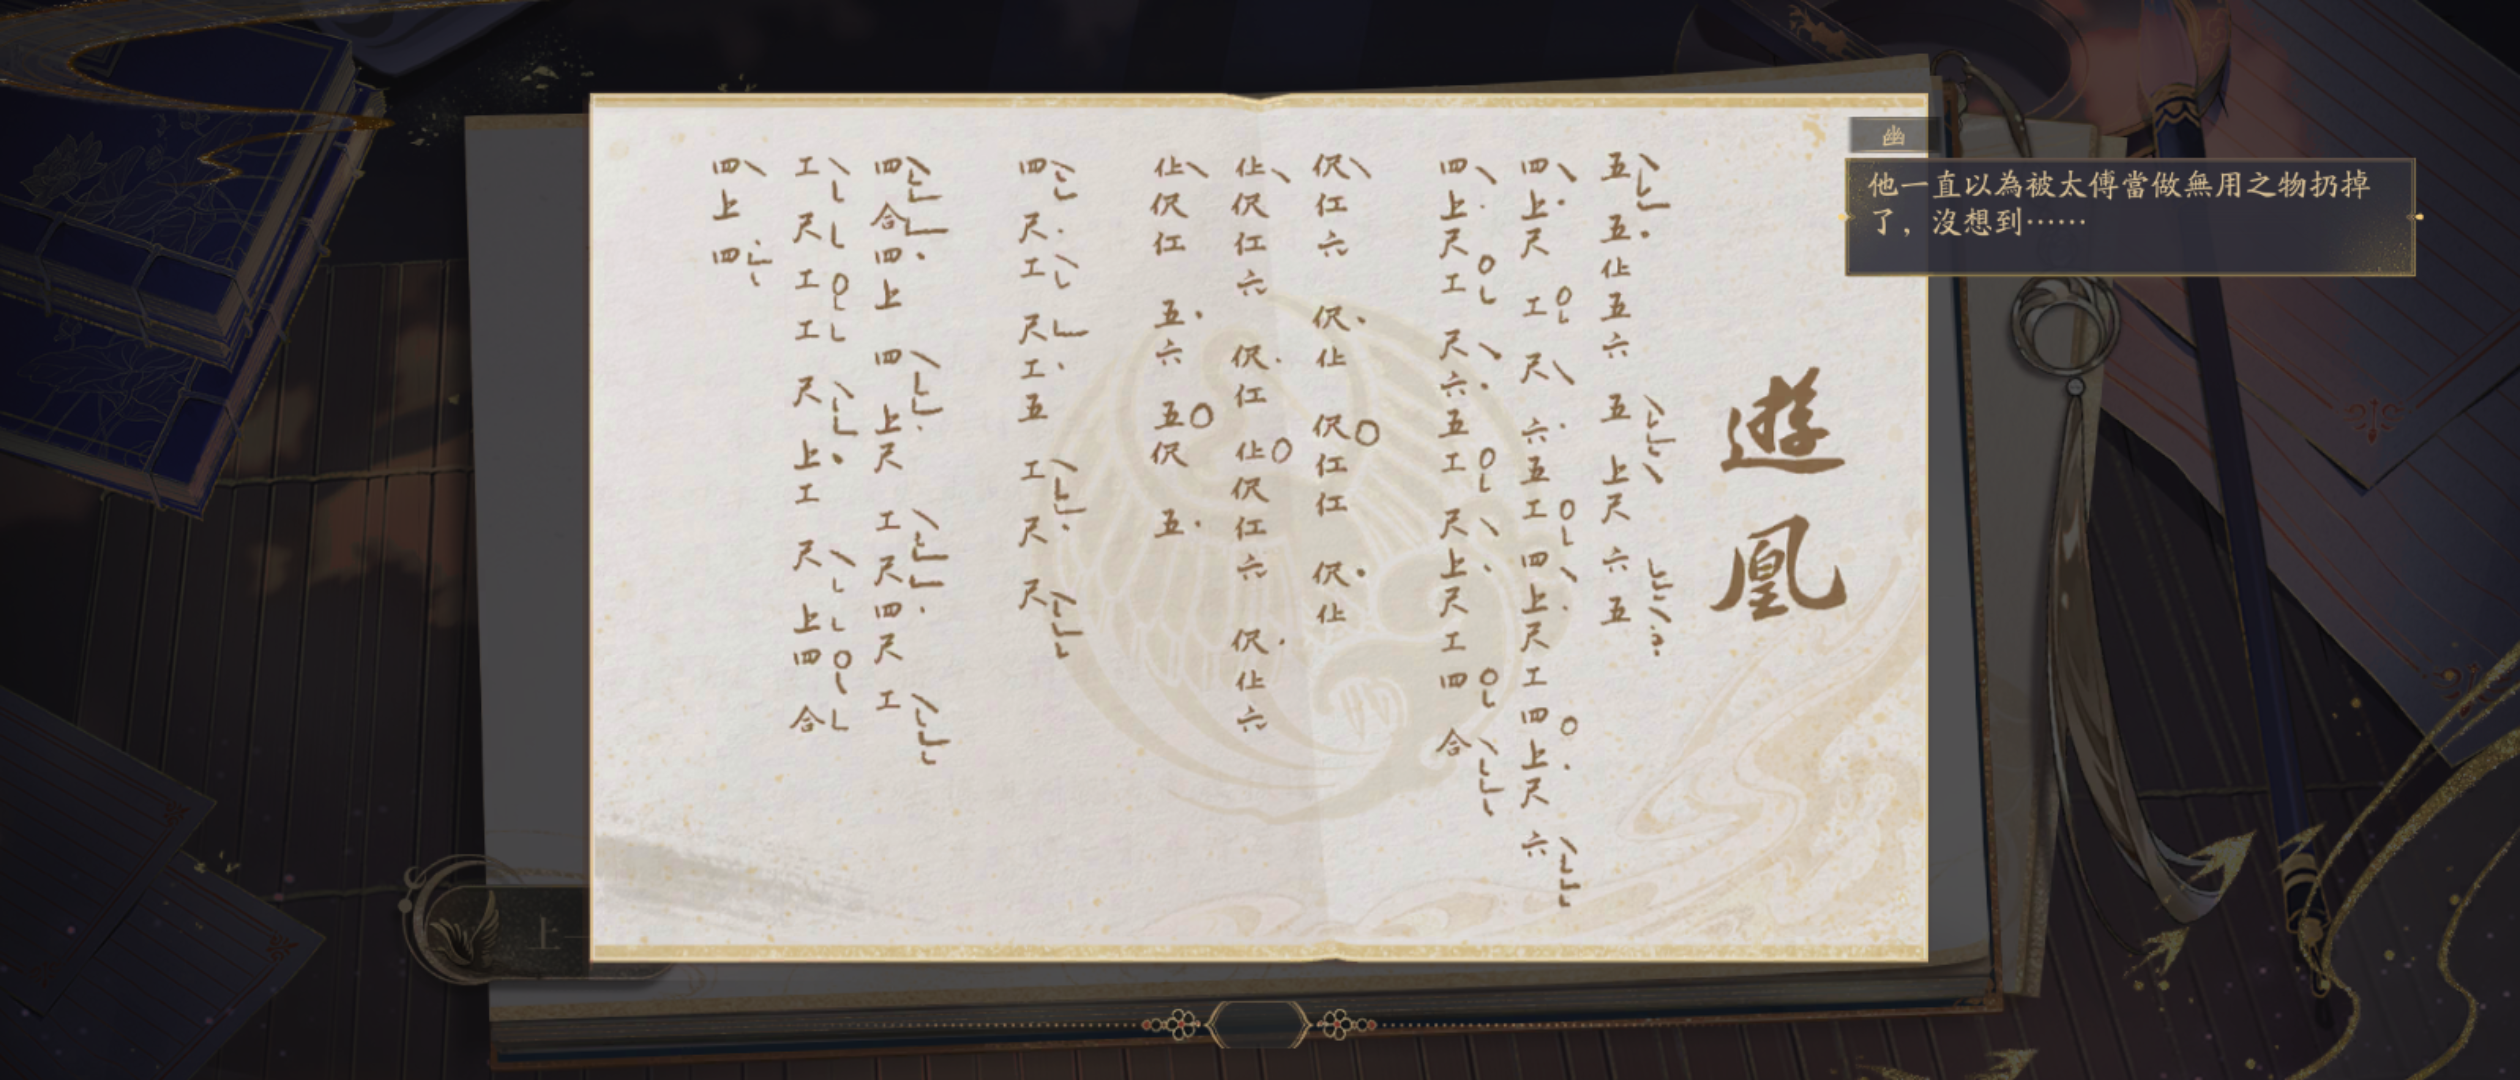 遊凰
五五仩五六五上尺六五
四上尺工尺六五工四上尺工四上尺六
四上尺工尺六五工尺上尺工四合
伬仜六伬仩伬仜仜伬仩
仩伬仜六伬仜仩伬仜六伬仩六
仩伬仜五六五伬五
四尺工尺工五工尺尺
四合四上四上尺工尺四尺工
工尺工工尺上工尺上四合
四上四
幽
他一直以為被太傅當做無用之物扔掉
了，沒想到……
上一